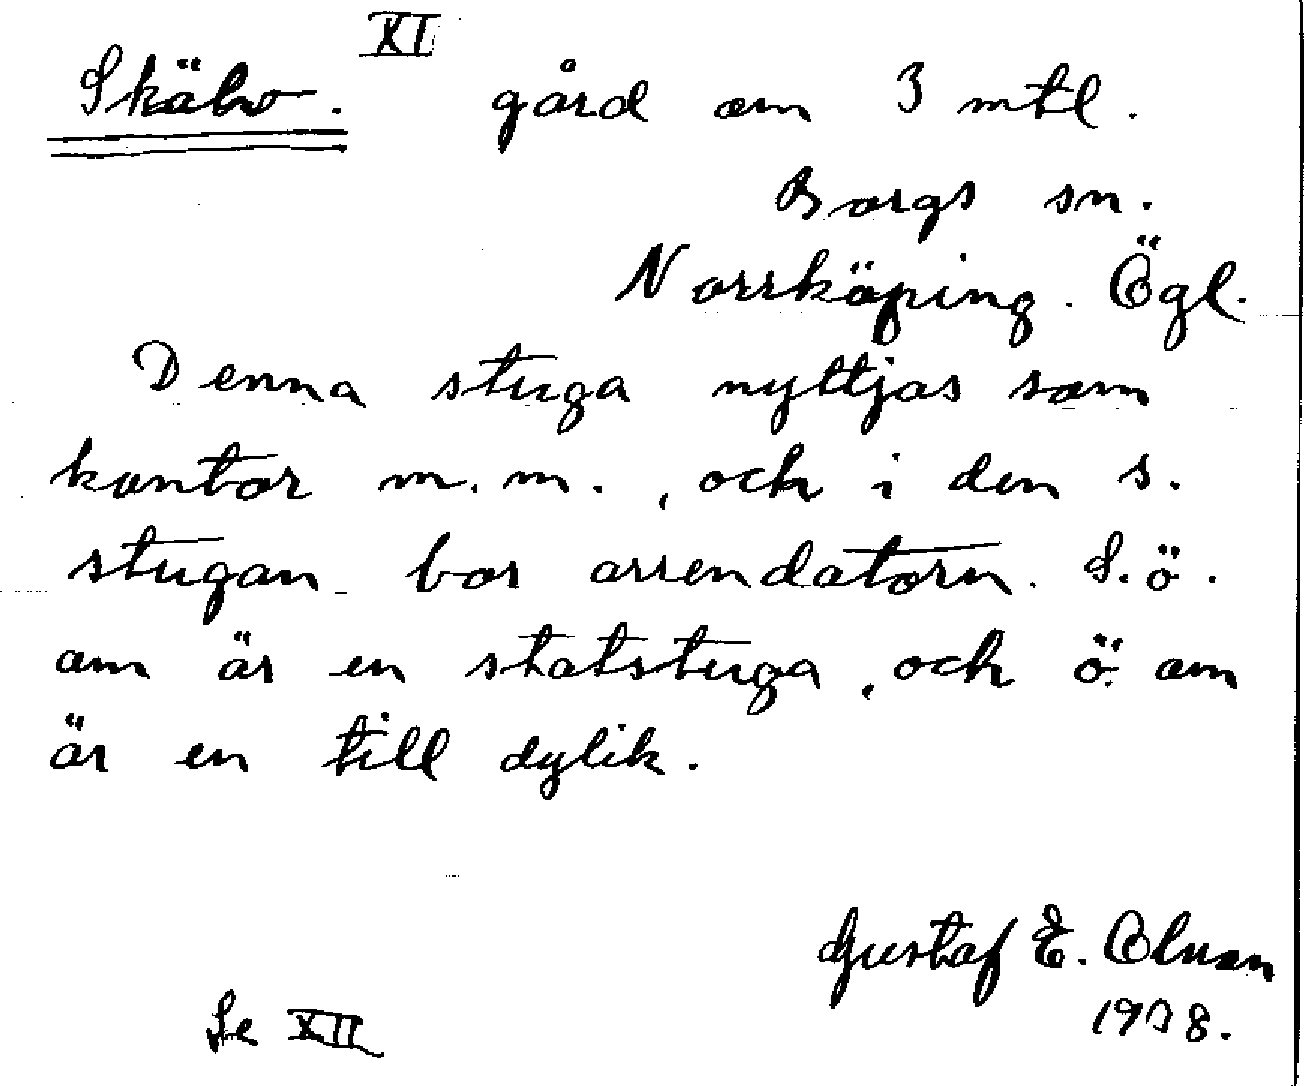 XI
Skälv. gård om 3 mtl.
Borgs sn.
Norrköping. Ögl.
Denna stuga nyttjas som
kontor m.m., och i den s.
stugan bor arrendatorn. S.ö.
om är en statstuga, och ö. om
är en till dylik.
Gustaf E. Olsson
1908.
Se XII